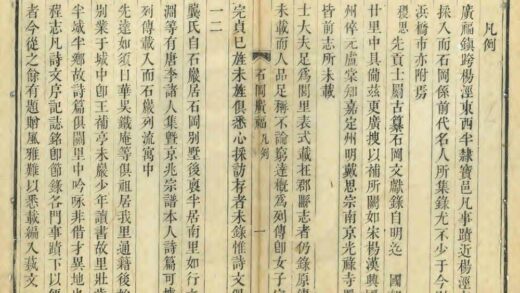 凡例
廣福鎮跨楊涇東西半隸寶邑凡事蹟近楊涇
採入而石岡係前代名人所集錄尤不少于今
浜橋市亦附焉
稷思先貢士罽古纂石岡文獻錄自明迄 國
廿里中具備茲更廣搜以補所闕如宋楊漢興
州倅元盧棠知嘉定州明戴思宗南京光祿寺
皆前志所未載
士大夫足爲閭里表式載在郡縣志者仍錄原
未載而人品足稱不論窮達概爲列傳即女子守
石岡廣福 凡例 一
完貞已旌未旌俱悉心採訪存者未錄惟詩文
一二
龔氏自石嚴居石岡別墅後裔半居南里如行
淵等有唐李諸人集暨京兆宗譜本人詩篇可
列傳載入而石嚴列流寓中
先達如須日華吳鐵庵等俱祖居我里通籍後
別業于城中即王補亭未嚴少年讀書故里壯
半城鄉故詩篇俱關里中吟咏非借才異地
程志凡詩文序記誌銘即節錄各門事蹟下以
者今從之餘有題贈風雅難以悉載編入藝文